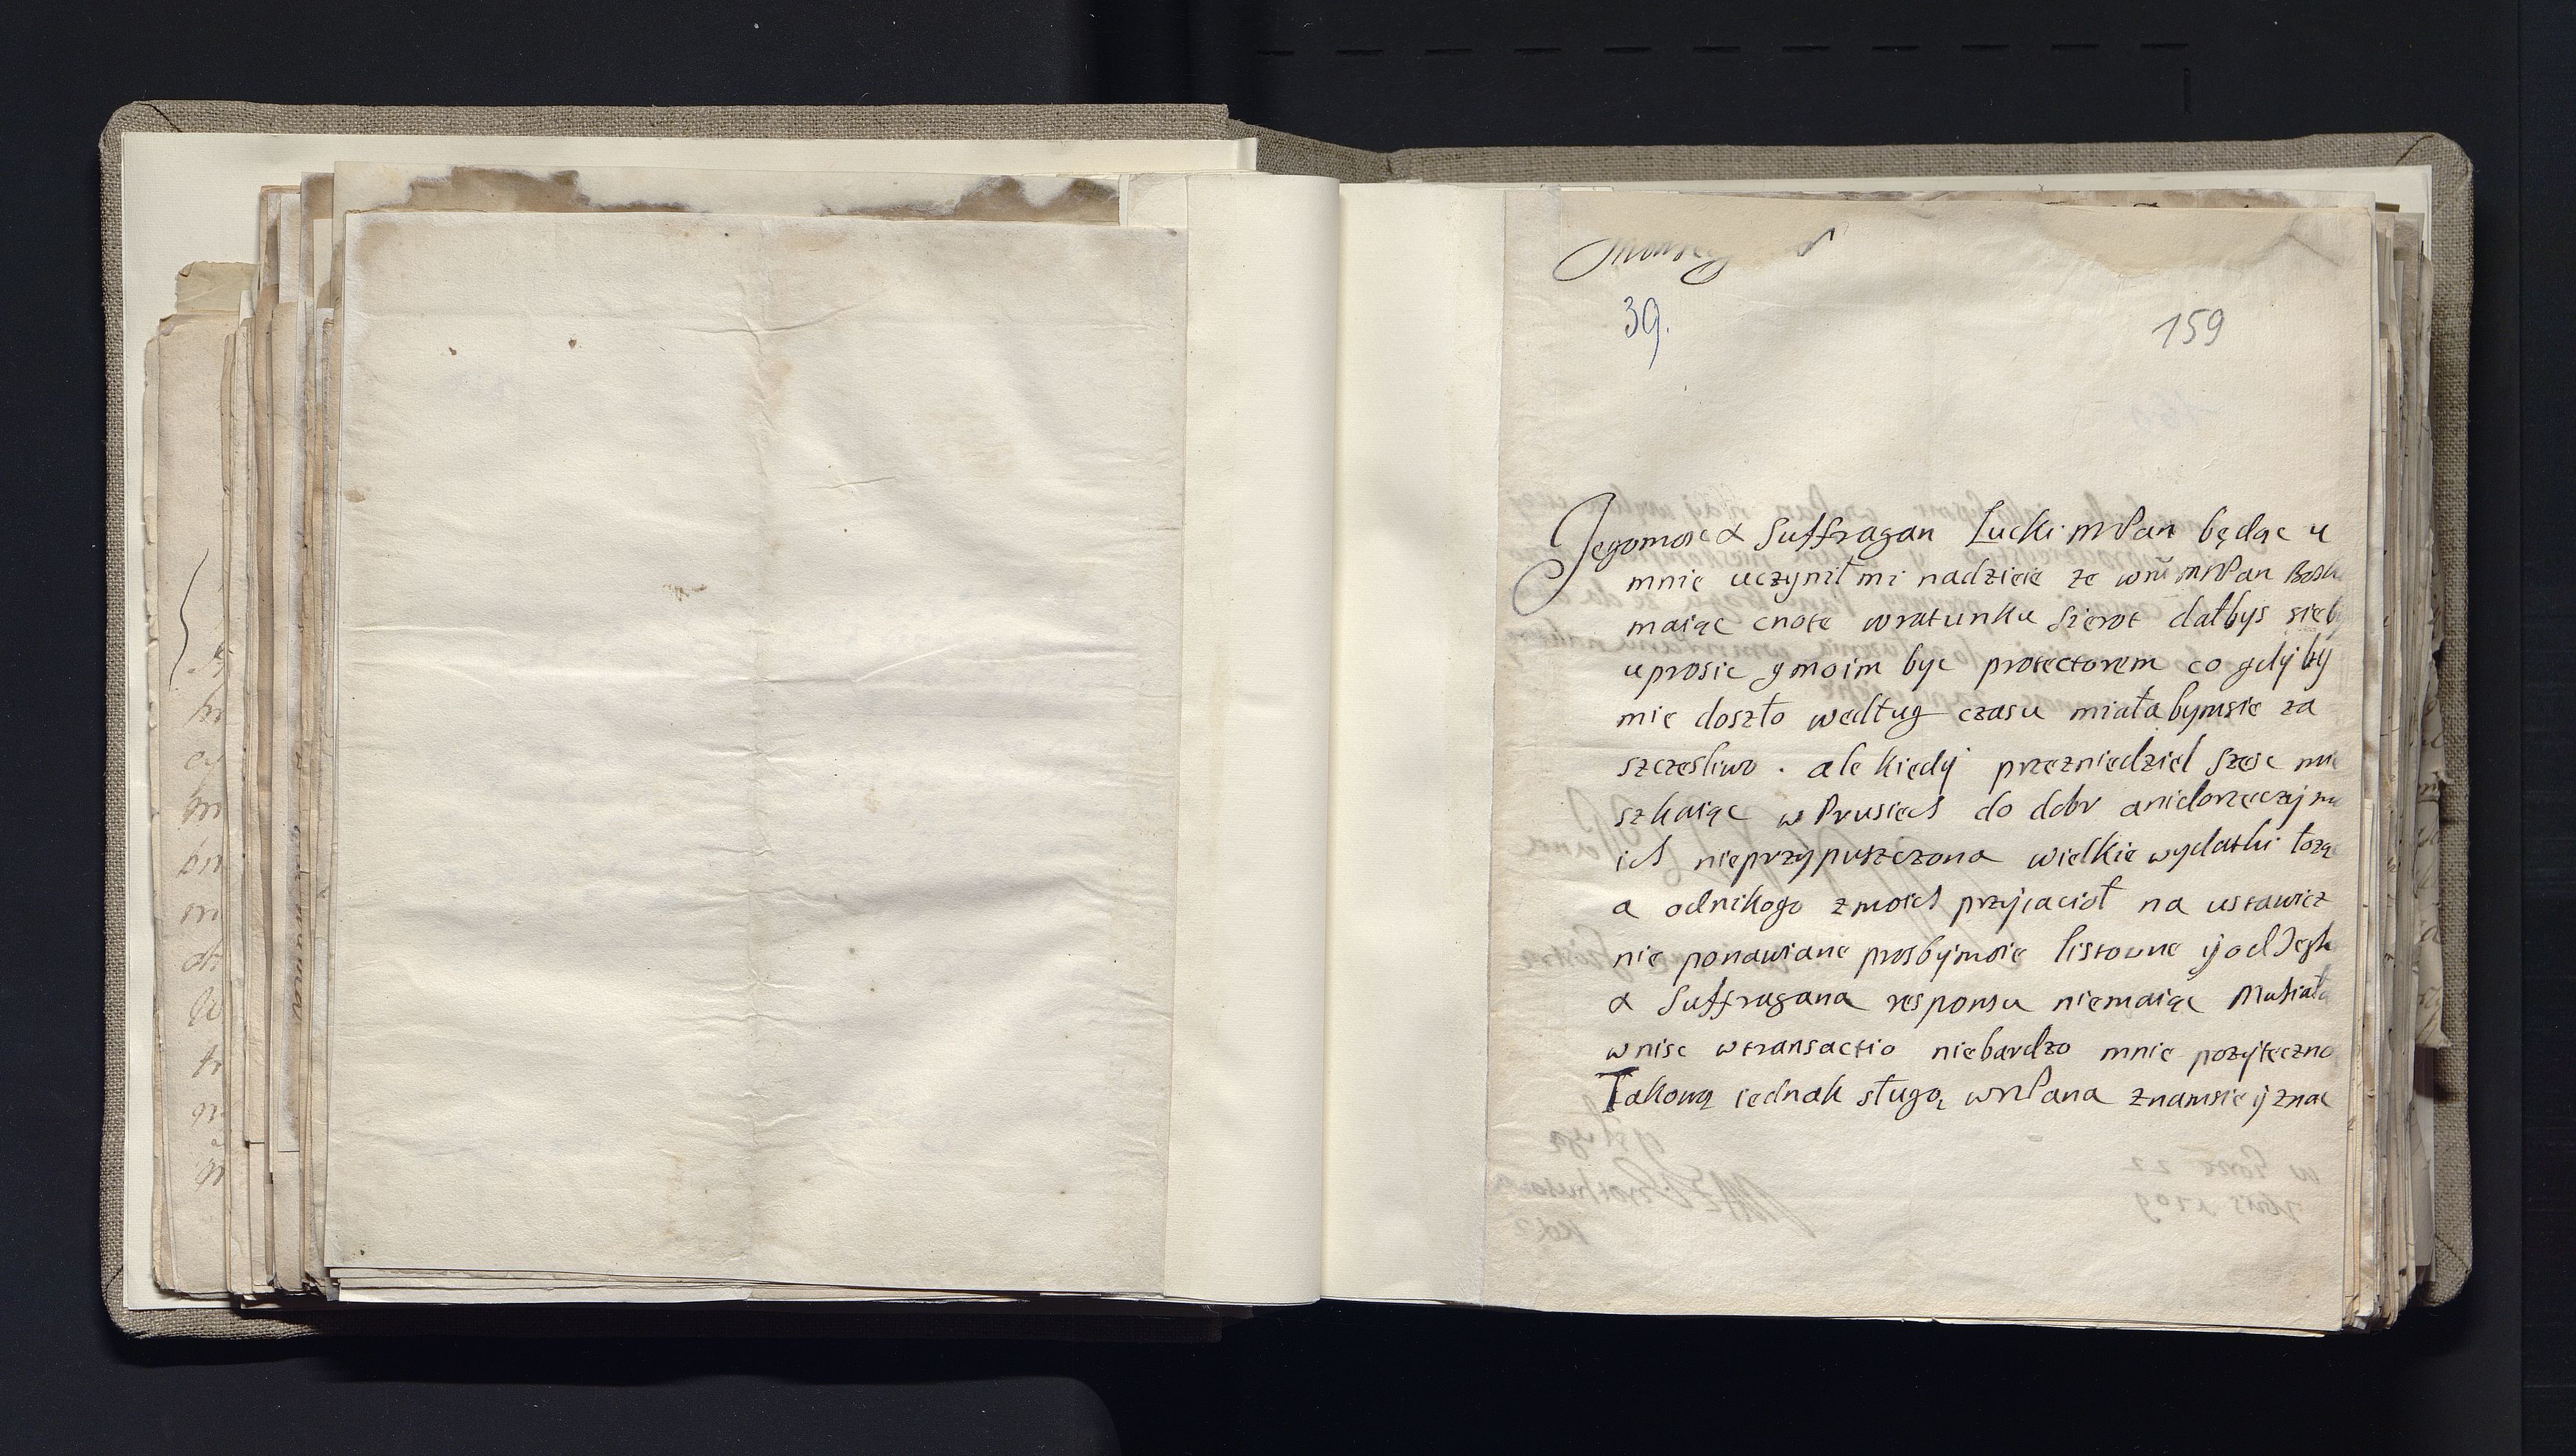 39.
159
Jegomosc X Suffragan Łucki M Pan będąc u
mnie uczynił mi nadzieie ze wm̃ MMPan
maiąc cnote w ratunku Sierot dałbys sie
uprosic y moim byc protectorem co gdyby
mie doszło według czasu miałabymsie za
szczesliwo . ale kiedy przezniedziel szesc mie
szkaiąc w Prusiech do dobr anidorzeczy mo
ich nieprzypuszczona wielkie wydatki łożą
a odnikogo zmoich przyiacioł na ustawicz
nie ponawiane prosbymoie listowne y od
X Suffragana responsu niemaiąc Musiała
wnisc wtransactio niebardzo mnie pozyteczno
Takową iednak sługą wmPana znamsie y znac